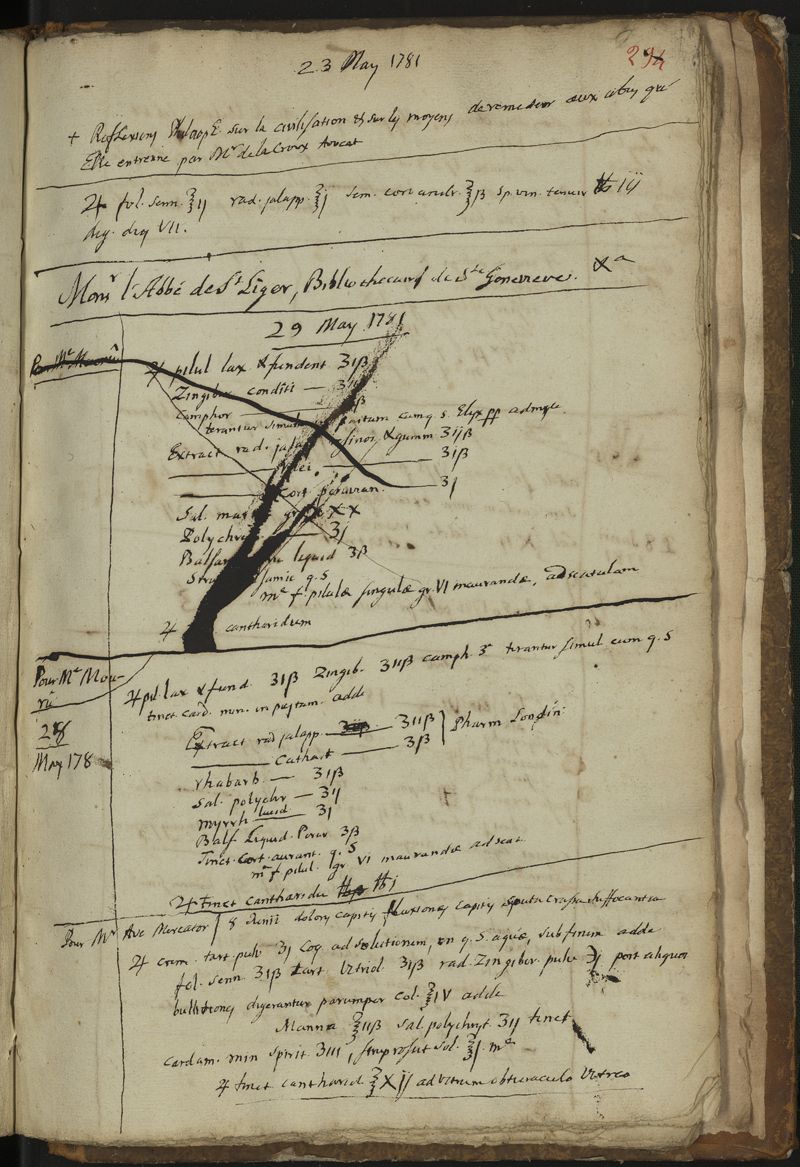 23 May 1781
294
+ Reflexions sur la civilisation & sur les moyens de remedier aux abus qu'
Elle entrenne par Mr de la Croix Avocat
♃ fol. senn. ℥ij rad. jalapp. ℥j sem. coriandr. ℥ß sp. vin. tenuior ℔ iij
dig. dieb VII.
Monsr l'Abbé de St Liger, Bibliothecaire de Ste Genevieve. Xa
29 May 1781
Pour Mr Mouru
♃ pilul lax & fundent ʒiß
Zingiber conditi —
Camphor ß
terantur simul pastum cum q. s. Elix pp admixe
Extract rad. jalap & gumm ʒijß
ʒiß
cort peruvian. — ʒj
Sal. mart gr XX
Polychr — ʒj
Balsam liquid ʒß
q. s
me f. pilulæ singulæ gr. VI inaurandæ, ad scatulam
♃ cantharidum
Pour Mr Mou-
ru
28
May 178
♃ pil. lax & fund. ʒiß Zingib. ʒijß camph. terantur simul cum q. s
tinct card. min. in pastum adde
Extract rad jalapp — ʒijß } Pharm Londin
— Cathart — ʒß
rhabarb — ʒiß
Sal. polychr — ʒij
myrrh lucid ʒj
Balf Liquid. Peruv ʒß
Tinct. cort. aurant. q. s
me f pilul. gr VI inaurandæ ad scat
♃ tinct cantharidu ℔j
Pour Mr Ave Mercator 8 Junii dolores capitis, fluxiones capitis sputa crassa suffocantia
♃ crem. tart pulv ʒj coq ad solutionem, in q. s. aquæ, sub finem adde
fol. senn ʒiß tart vitriol. ʒiß rad. Zingiber. pulv ℈j post aliquot
bullitiones digerantur parumper col. ℥IV adde
Manna ℥ijß sal. polychryt ʒij tinct
cardam. min spirit ʒiii, syr rosat sol. ℥j. me
♃ tinct cantharid ℥Xij ad vitrum obturaculo vitreo